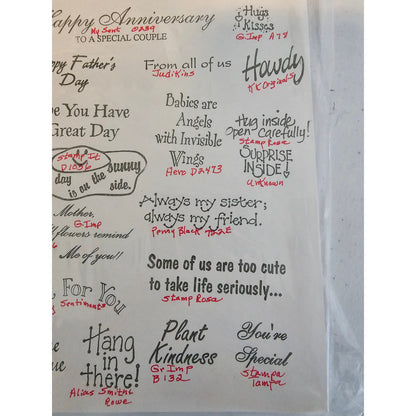 Happy Anniversary
My Sent. D239
TO A SPECIAL COUPLE
Hugs
Kisses
G.Imp A78
ppy Father's
Day
From all of us
JudiKins
Howdy
KK Originals
Babies are
Angels
with Invisible
Wings
Aero D2473
pe You Have
Great Day
Hug inside
Open Carefully!
Stamp Rosa
SURPRISE
INSIDE!
Unknown
Stamp It
D1036
day
is on the sunny
side.
Mother,
G.Imp
flowers remind
Me of you!!
Always my sister;
always my friend.
Penny Black 722E
Some of us are too cute
to take life seriously...
Stamp Rosa
For You
Sentiments
Hang
in
there!
Alias Smith &
Rowe
Plant
Kindness
Gr Imp
B132
You're
Special
Stampa
Tampa